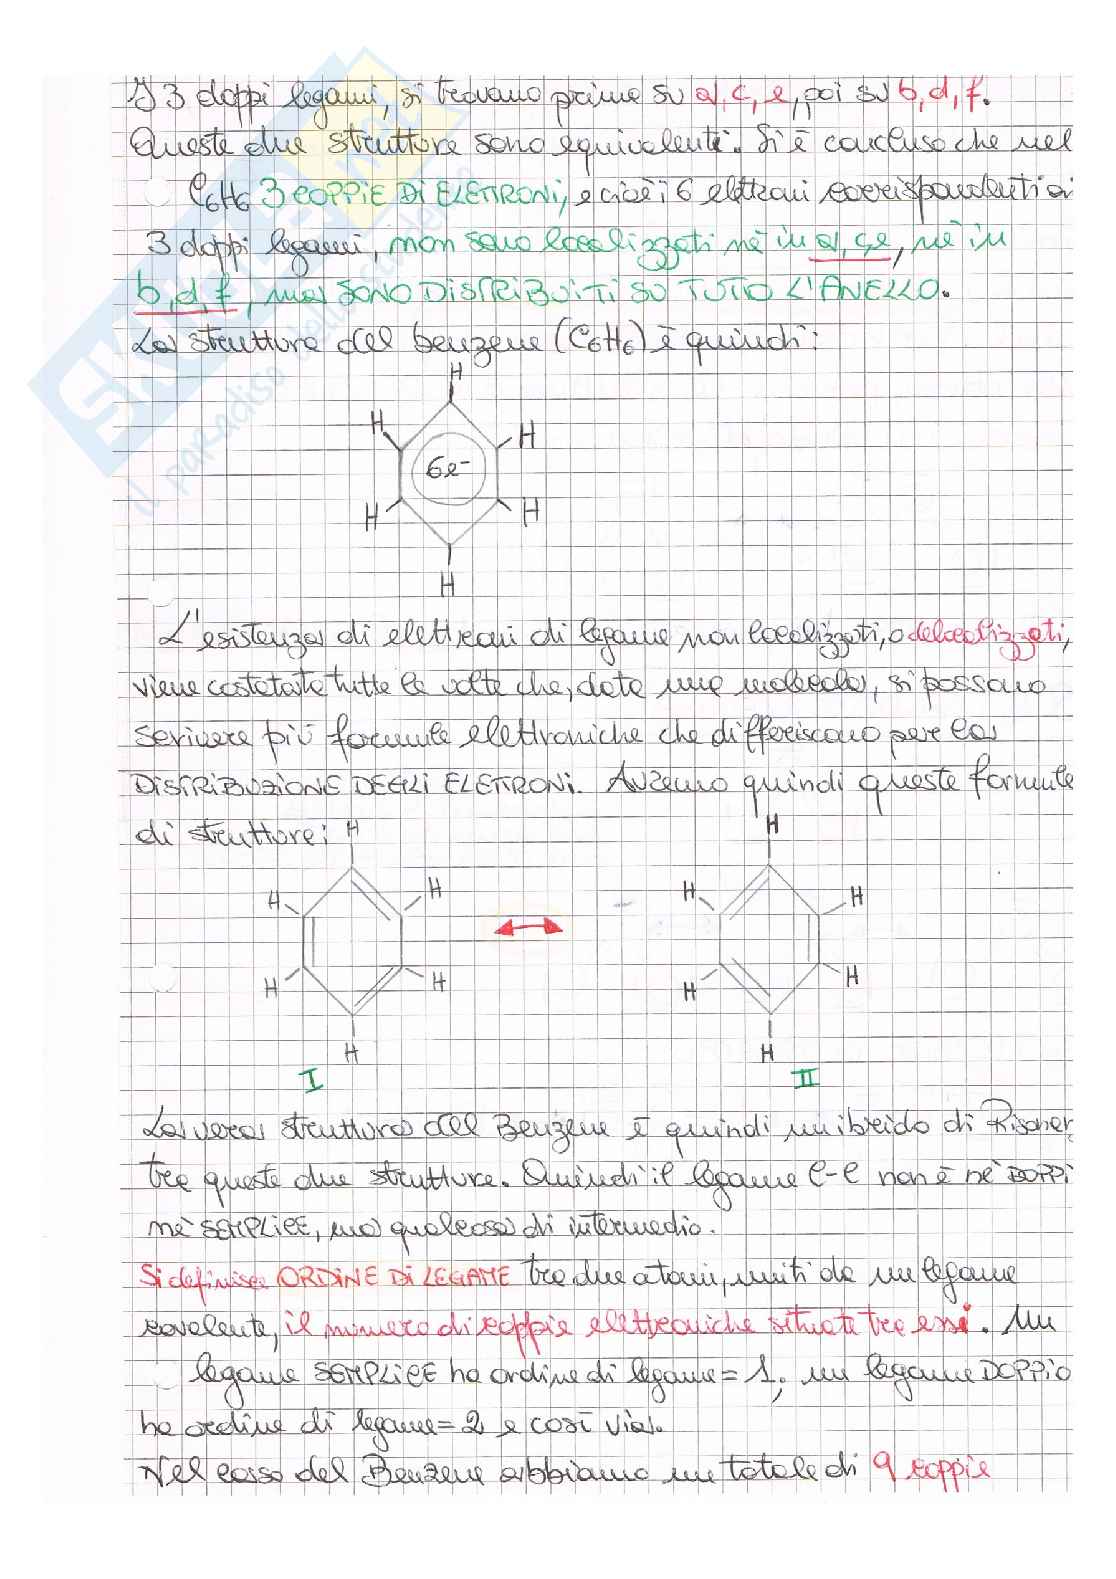 I 3 doppi legami, si trovano prima su a, c, e, poi su b, d, f.
Queste due strutture sono equivalenti. Si è concluso che nel
C6H6 3 COPPIE DI ELETRONI, e cioè i 6 elettroni corrispondenti ai
3 doppi legami, non sono localizzati nè in a, c, e, nè in
b, d, f, ma SONO DISTRIBUITI SU TUTTO L'ANELLO.
La struttura del benzene (C6H6) è quindi:
H
H
H
6e-
H
H
H
L'esistenza di elettroni di legame non localizzati, o delocalizzati,
viene costatata tutte le volte che, data una molecola, si possono
scrivere più formule elettroniche che differiscono per la
DISTRIBUZIONE DEGLI ELETRONI. Avremo quindi queste formule
di struttura:
H
H
H
H
H
H
H
H
H
H
H
H
I
II
La vera struttura del Benzene è quindi un ibrido di
tra queste due strutture. Quindi il legame C-C non è nè DOPPI
nè SEMPLICE, ma qualcosa di intermedio.
Si definisce ORDINE DI LEGAME tra due atomi, uniti da un legame
covalente, il numero di coppie elettroniche situate tra essi. Un
legame SEMPLICE ha ordine di legame = 1; un legame DOPPIO
ha ordine di legame = 2 e così via.
Nel caso del Benzene abbiamo un totale di 9 coppie
SKUOLA.net
il paradiso dello studente